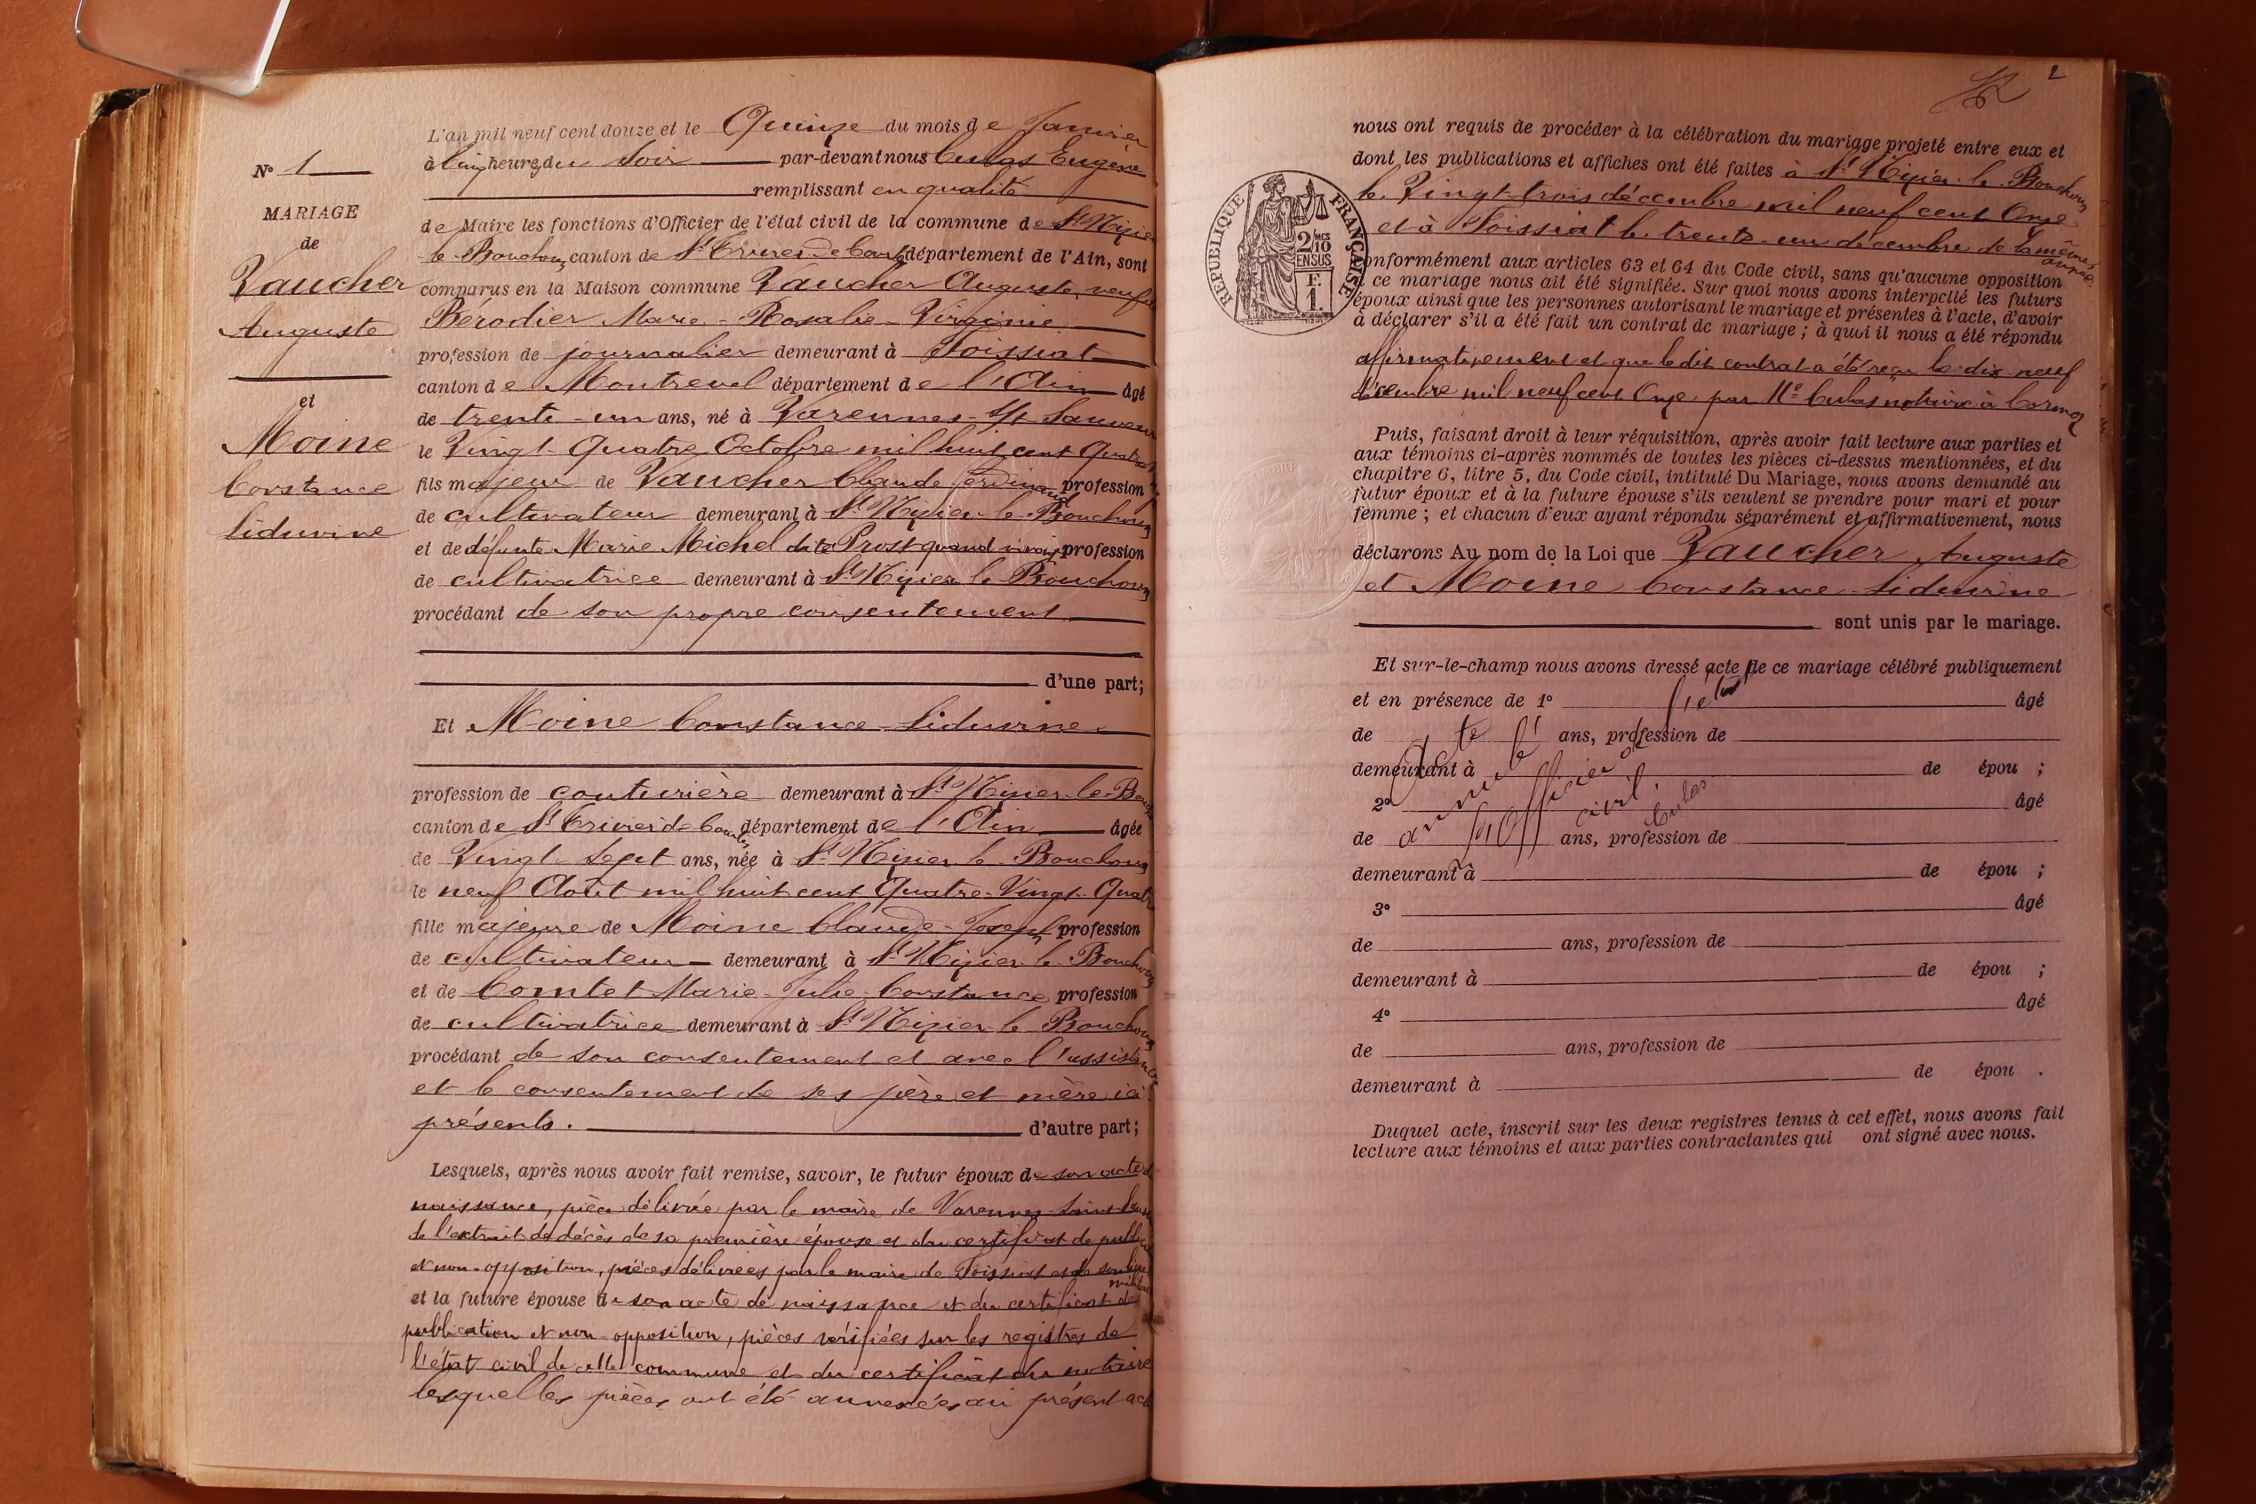 L'an mil neuf cent douze et le Quinze du mois de Janvier
à Cinq heures du Soir par-devant nous Cubas Eugène
remplissant en qualité
de Maire les fonctions d'Officier de l'état civil de la commune de St Nizier
le Bouchoux, canton de St Trivier de Courtes département de l'Ain, sont
comparus en la Maison commune Vaucher Auguste, veuf de
Bérodier Marie-Rosalie-Virginie
profession de journalier demeurant à Foissiat
canton de Montrevel département de l'Ain âgé
de trente-un ans, né à Varennes-St Sauveur
le Vingt-Quatre Octobre mil huit cent Quatre
fils majeur de Vaucher Claude Ferdinand profession
de cultivateur demeurant à St Nizier-le-Bouchoux
et de défunte Marie Michel dite Prost quand vivait profession
de cultivatrice demeurant à St Nizier le Bouchoux
procédant de son propre consentement
d'une part;
Et Moine Constance-Liduvine
profession de couturière demeurant à St Nizier-le-Bouch
canton de St Trivier de Courtes département de l'Ain âgée
de Vingt-Sept ans, née à St Nizier-le-Bouchoux
le neuf Août mil huit cent Quatre-Vingt-Quatre
fille majeure de Moine Claude-Joseph profession
de cultivateur demeurant à St Nizier-le-Bouchoux
et de Comtet Marie-Julie-Constance profession
de cultivatrice demeurant à St Nizier-le-Bouchoux
procédant de son consentement et avec l'assistance
et le consentement de ses père et mère ici
présents. d'autre part;
Lesquels, après nous avoir fait remise, savoir, le futur époux de son acte de
naissance, pièce délivrée par le maire de Varennes-Saint-Sauveur
de l'extrait de décès de sa première épouse et du certificat de publica
et non-opposition, pièces délivrées par le maire de Foissiat et de son livret
militaire
et la future épouse de son acte de naissance et du certificat de
publication et non-opposition, pièces vérifiées sur les registres de
l'état civil de cette commune et du certificat du notaire
lesquelles pièces ont été annexées au présent acte
No 1
MARIAGE
de
Vaucher
Auguste
et
Moine
Constance
Liduvine
2
nous ont requis de procéder à la célébration du mariage projeté entre eux et
dont les publications et affiches ont été faites à St Nizier-le-Bouchoux
le Vingt-trois décembre mil neuf cent Onze
et à Foissiat le trente-un décembre de la même
année
conformément aux articles 63 et 64 du Code civil, sans qu'aucune opposition
à ce mariage nous ait été signifiée. Sur quoi nous avons interpellé les futurs
époux ainsi que les personnes autorisant le mariage et présentes à l'acte, d'avoir
à déclarer s'il a été fait un contrat de mariage; à quoi il nous a été répondu
affirmativement et que le dit contrat a été reçu le dix-neuf
décembre mil neuf cent Onze par Me Cubas, notaire à Cormoz
RÉPUBLIQUE FRANÇAISE
2 MES
10
EN SUS
F.
1.
Puis, faisant droit à leur réquisition, après avoir fait lecture aux parties et
aux témoins ci-après nommés de toutes les pièces ci-dessus mentionnées, et du
chapitre 6, titre 5, du Code civil, intitulé Du Mariage, nous avons demandé au
futur époux et à la future épouse s'ils veulent se prendre pour mari et pour
femme; et chacun d'eux ayant répondu séparément et affirmativement, nous
déclarons Au nom de la Loi que Vaucher Auguste
et Moine Constance-Liduvine
sont unis par le mariage.
Et sur-le-champ nous avons dressé acte de ce mariage célébré publiquement
et en présence de 1o âgé
de ans, profession de
demeurant à de épou ;
2o âgé
de ans, profession de
demeurant à de épou ;
3o âgé
de ans, profession de
demeurant à de épou ;
4o âgé
de ans, profession de
demeurant à de épou .
Acte annulé
l'Officier de l'état
civil.
Cubas
Duquel acte, inscrit sur les deux registres tenus à cet effet, nous avons fait
lecture aux témoins et aux parties contractantes qui ont signé avec nous.